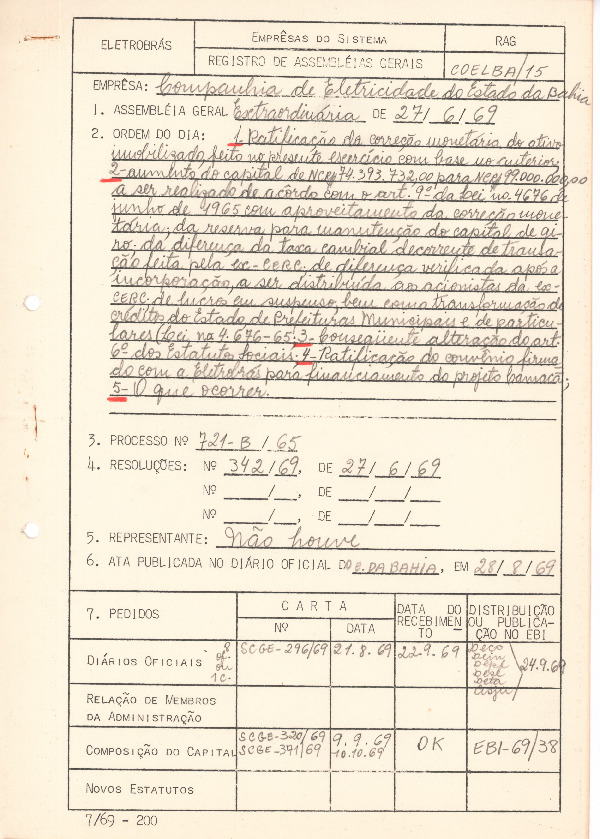 ELETROBRÁS
EMPRÊSAS DO SISTEMA
RAG
REGISTRO DE ASSEMBLÉIAS GERAIS
COELBA/15
EMPRÊSA: Companhia de Eletricidade do Estado da Bahia
1. ASSEMBLÉIA GERAL Extraordinária DE 27/6/69
2. ORDEM DO DIA: 1-Ratificação da correção monetária do ativo
imobilizado, feito no presente exercício com base no anterior;
2-aumento do capital de NCr$74.393.732,00 para NCr$99.000.000,00
a ser realizado de acôrdo com o art. 9º da Lei nº 4676 de
junho de 1965 com aproveitamento da correção mone-
tária; da reserva para manutenção do capital de gi-
ro. da diferença da taxa cambial decorrente de transa-
ção feita pela ex-CERC. de diferença verificada após a
incorporação, a ser distribuída aos acionistas da ex-
CERC. de lucro em suspenso, bem como transformação de
créditos do Estado de Prefeituras Municipais e de particu-
lares (Lei na 4.676-65; 3-Conseqüente alteração do art.
6º dos Estatutos Sociais; 4-Ratificação do convênio firma-
do com a Eletrobrás para financiamento do projeto Camacã;
5-O que ocorrer.
3. PROCESSO Nº 721-B/65
4. RESOLUÇÕES: Nº 342/69, DE 27/6/69
Nº ___/___, DE ___/___/___
Nº ___/___, DE ___/___/___
5. REPRESENTANTE: Não houve
6. ATA PUBLICADA NO DIÁRIO OFICIAL DO E. DA BAHIA, EM 28/8/69
7. PEDIDOS
CARTA
Nº
DATA
DATA DO RECEBIMENTO
DISTRIBUIÇÃO OU PUBLICAÇÃO NO EBI
DIÁRIOS OFICIAIS
SCGE-296/69
21.8.69
22.9.69
24.9.69
RELAÇÃO DE MEMBROS
DA ADMINISTRAÇÃO
COMPOSIÇÃO DO CAPITAL
SCGE-320/69
9.9.69
OK
EBI-69/38
SCGE-391/69
10.10.69
NOVOS ESTATUTOS
7/69 - 200